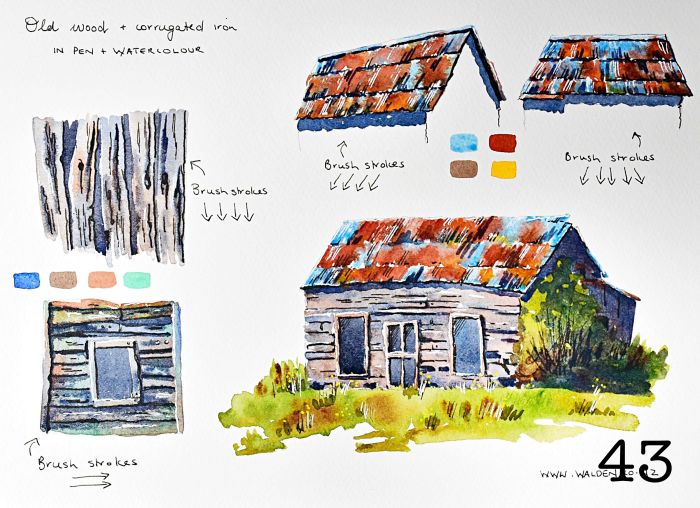 Old wood + corrugated iron
IN PEN + WATERCOLOUR
Brush strokes
Brush strokes
Brush strokes
Brush strokes
43